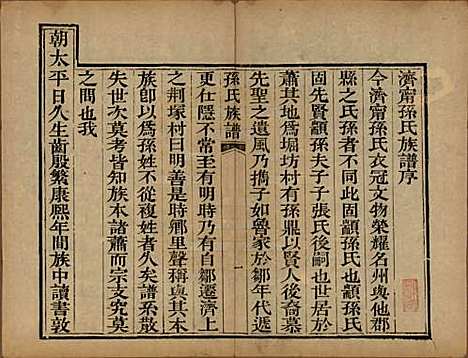 濟甯孫氏族譜序
今濟甯孫氏衣冠文物榮耀名州與他郡
縣之氏孫者不同此固顓孫氏也顓孫氏
固先賢顓孫夫子子張氏後嗣也世居於
蕭其地為堀坊村有孫鼎以賢人後裔慕
先聖之遺風乃攜子如魯家於鄒年代遞
孫氏族譜
一
更仕隱不常至有明有自鄒遷濟上
之荆塚村曰明善是時鄉里稱與其
族卽以為孫姓不從複姓者久矣譜系散
失世次莫考皆知族本諸蕭而宗支究莫
之問也我
朝太平日久生齒殷繁康熙年間族中讀書敦